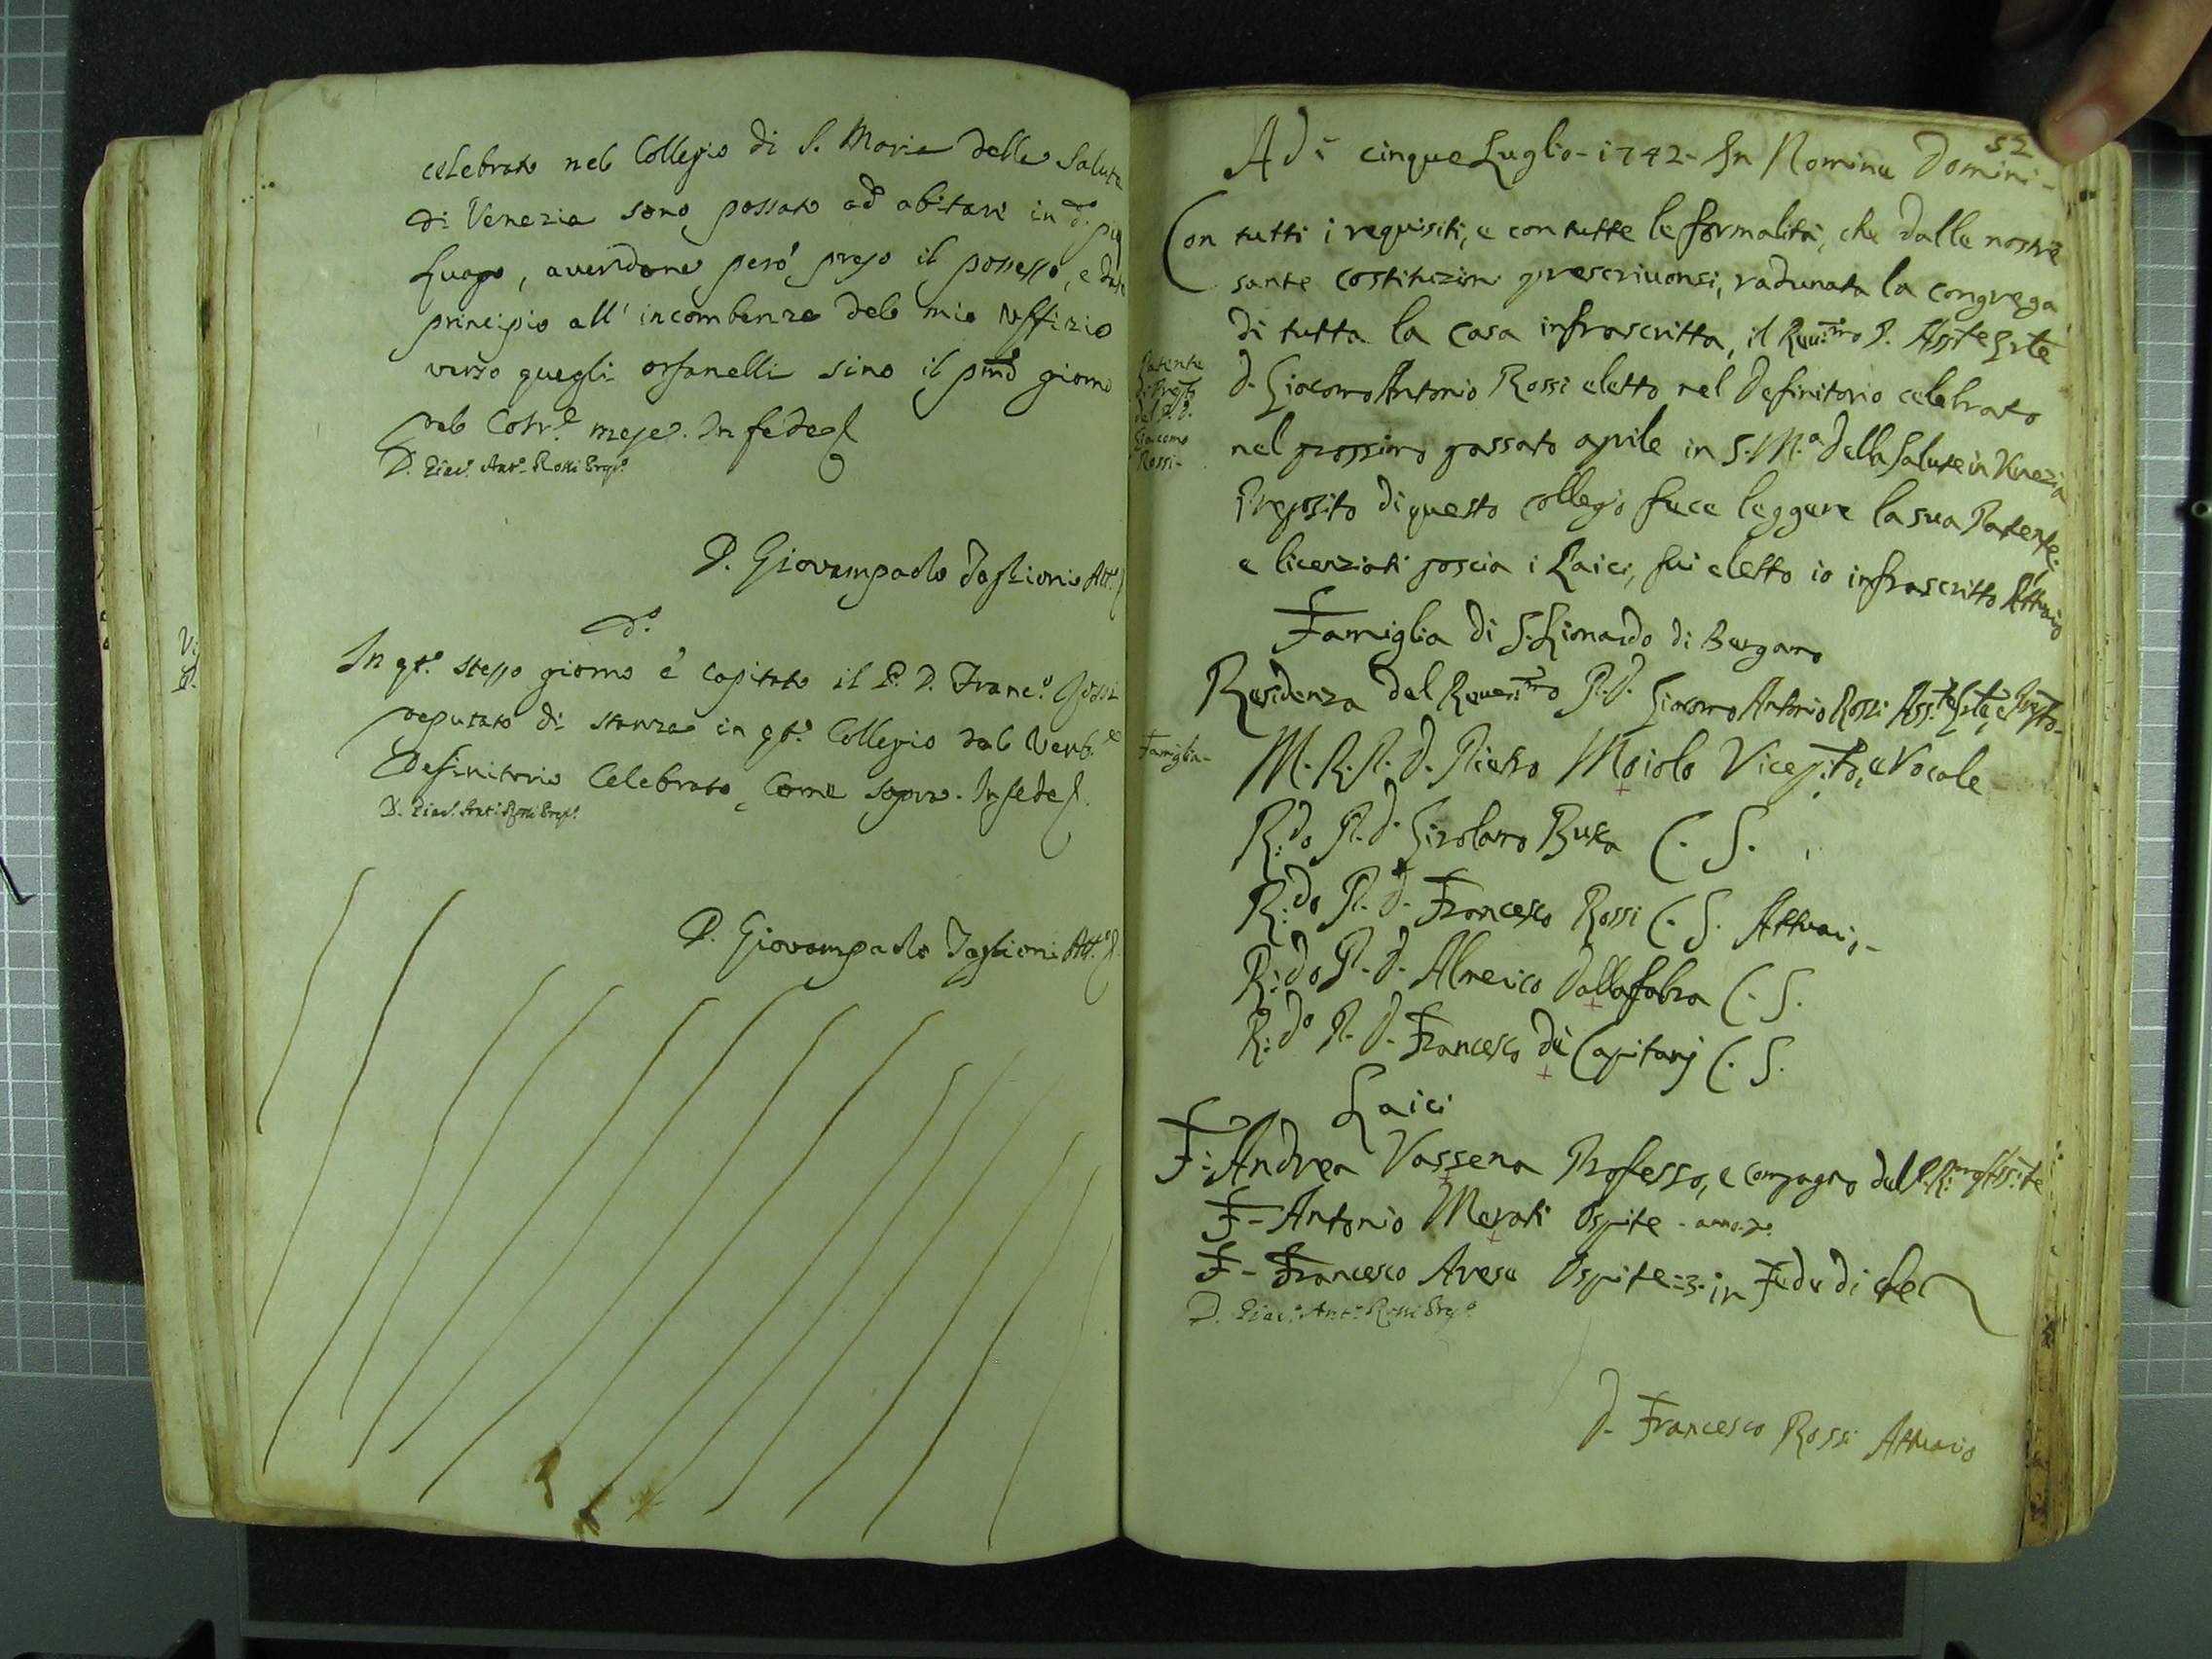 celebrato nel Collegio di S. Maria della Salute
di Venezia sono passato ad abitare in d.º pio
Luogo, avendone però preso il possesso, e dato
principio all' incombenze del mio Uffizio
verso quegli orfanelli sino il pmo giorno
del Corr.e mese. In fede
D. Giac.º Ant.º Rossi Prep.º
D. Giovampaolo Taglioni Att.º
d.º
In qt.º stesso giorno è capitato il P. D. Franc.º Rossi
deputato di stanza in qt.º Collegio dal Venb.e
Definitorio Celebrato, Come sopra. In fede
D. Giac.º Ant.º Rossi Prep.º
D. Giovampaolo Taglioni Att.º
52
Adi cinque Luglio-1742- In Nomine Domini-
Con tutti i requisiti, e con tutte le formalità, che dalle nostre
sante costituzioni prescrivonsi, radunata la congrega
di tutta la casa infrascritta, il Reu.mo P. Asste
d. Giacomo Antonio Rossi eletto nel Definitorio celebrato
nel prossimo passato aprile in S. M.a della Salute in Venezia
Preposito di questo collegio fece leggere la sua Patente,
e licenziati poscia i Laici, fui eletto io infrascritto Attuario
Patente
di Prepto
del P. D.
Giacomo
Rossi-
Famiglia di S. Lionardo di Bergamo
Residenza del Reueri.mo P. D. Giacomo Antonio Rossi Ass.te e Prepto-
Famiglia-
M. R. P. D. Pietro Moiolo Vicep.to, e Vocale
R:do P. D. Girolamo Busca C. S.
R:do P. D. Francesco Rossi C. S. Attuario-
R:do P. D. Almeico Dallafabra C. S.
R:do P. D. Francesco de Capitanj C. S.
Laici
F: Andrea Vassena Professo, e compagno del P. R:mo Ass:te
F- Antonio Merati Ospite - anno 2º
F- Francesco Avesa Ospite = 3. in Fede di che
D. Giac.º Ant.º Rossi Prep.º
D. Francesco Rossi Attuario